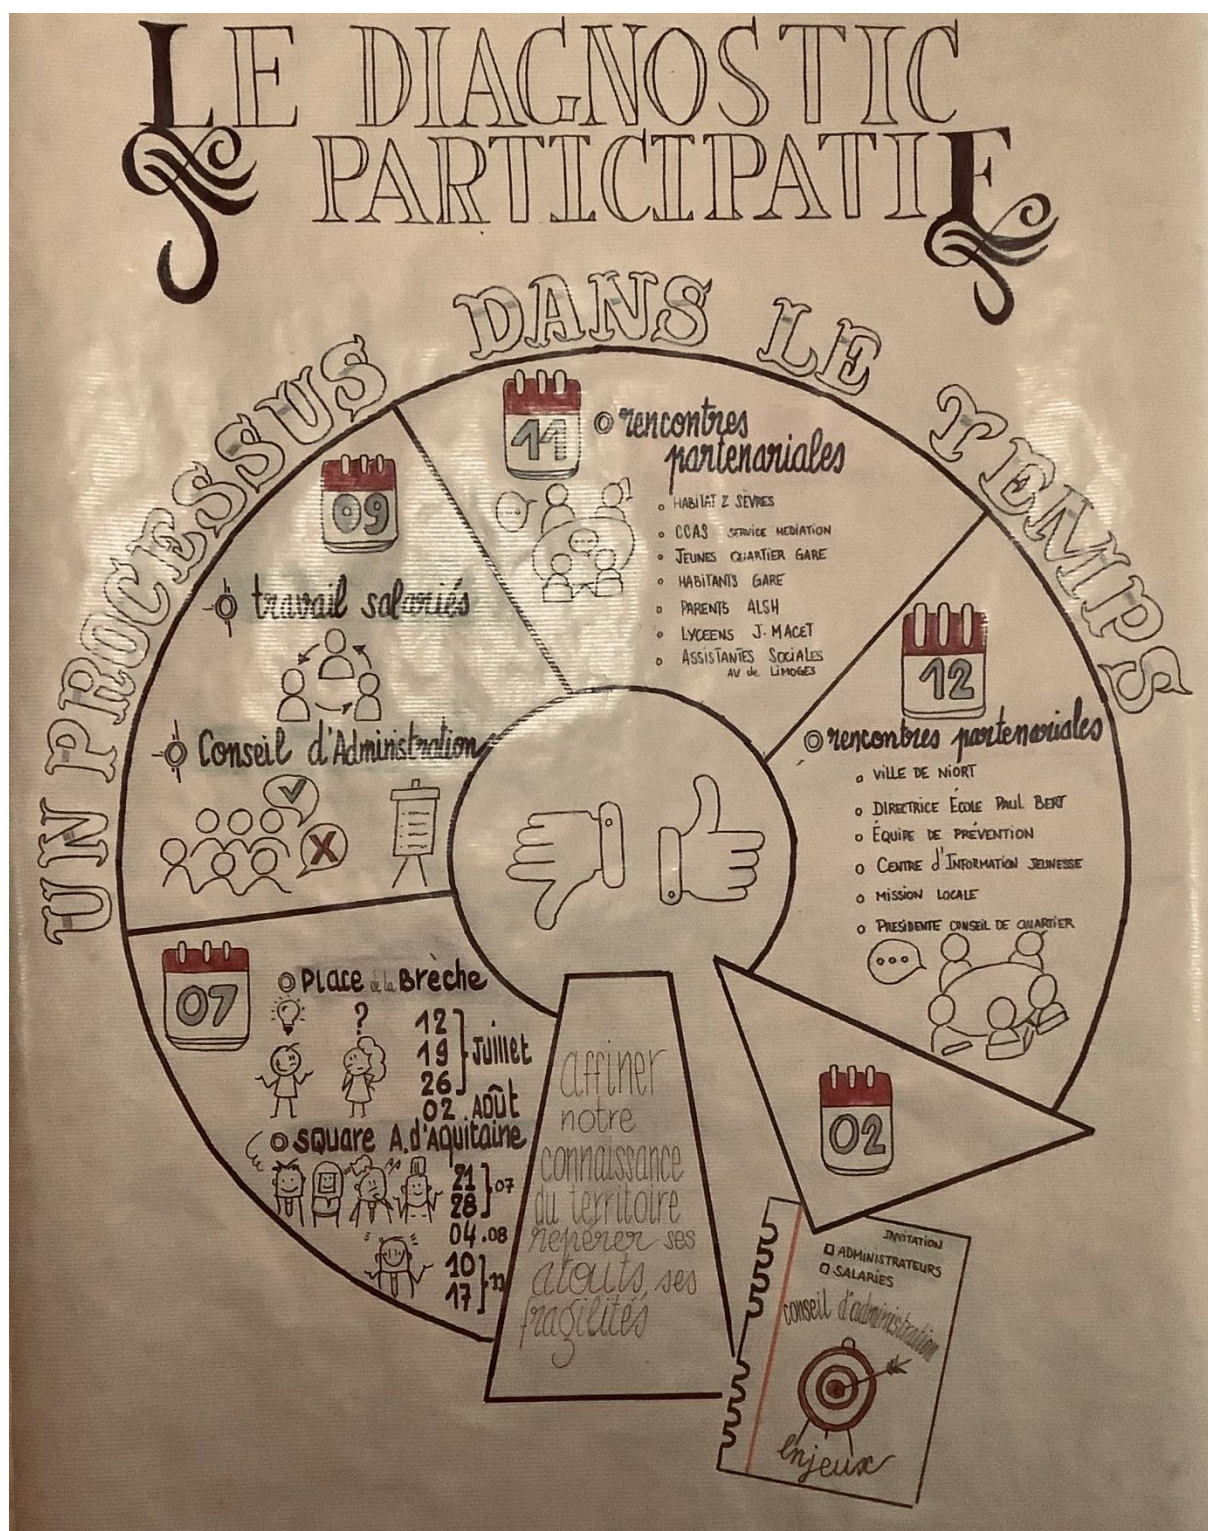 LE DIAGNOSTIC
PARTICIPATIF
UN PROCESSUS DANS LE TEMPS
07
Place de la Brèche
?
12
19
26
Juillet
02 Août
square A. d'Aquitaine
21
28
07
04.08
10
17
09
travail salariés
Conseil d'Administration
11
rencontres
partenariales
HABITAT 2 SÈVRES
CCAS SERVICE MEDIATION
JEUNES QUARTIER GARE
HABITANTS GARE
PARENTS ALSH
LYCEENS J. MACET
ASSISTANTES SOCIALES
AV de LIMOGES
12
rencontres partenariales
VILLE DE NIORT
DIRECTRICE ÉCOLE PAUL BERT
ÉQUIPE DE PRÉVENTION
CENTRE d'INFORMATION JEUNESSE
MISSION LOCALE
PRESIDENTE CONSEIL DE QUARTIER
02
affiner
notre
connaissance
du territoire
repérer ses
atouts, ses
fragilités
INVITATION
ADMINISTRATEURS
SALARIES
conseil d'administration
Enjeux